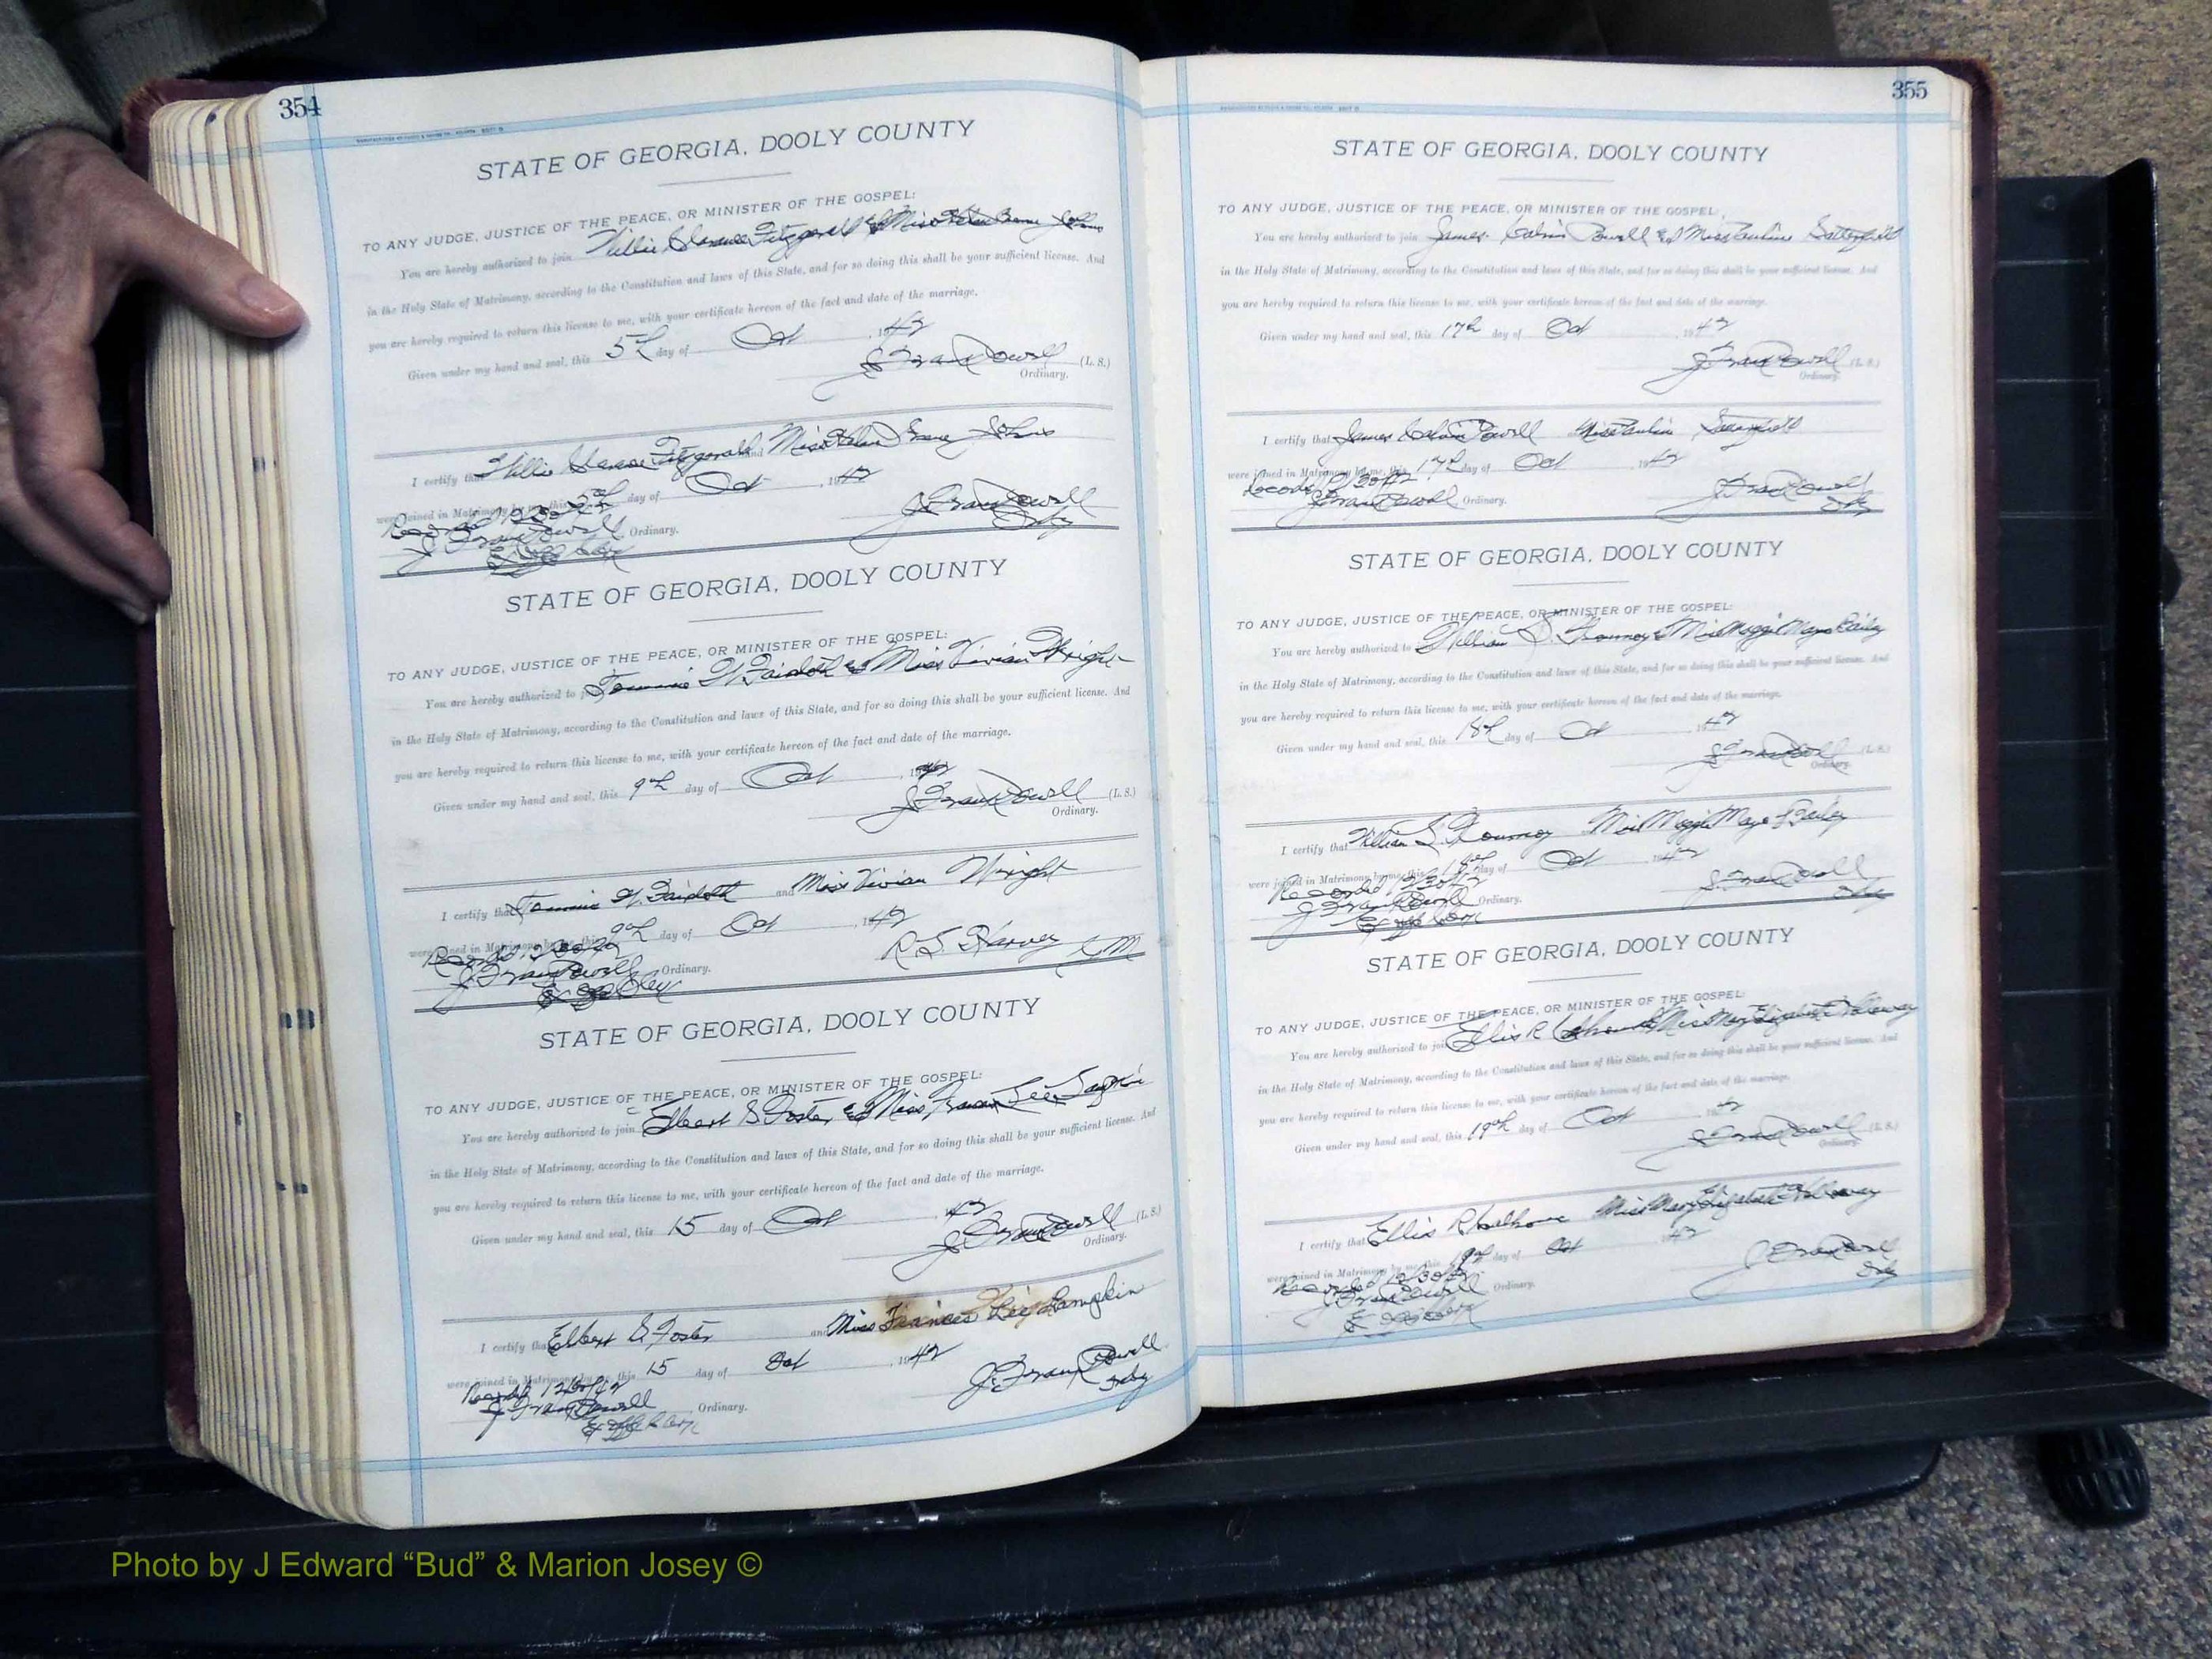 354
STATE OF GEORGIA, DOOLY COUNTY
TO ANY JUDGE, JUSTICE OF THE PEACE, OR MINISTER OF THE GOSPEL:
You are hereby authorized to join Willie Fitzgerald & Miss
in the Holy State of Matrimony, according to the Constitution and laws of this State, and for so doing this shall be your sufficient license. And
you are hereby required to return this license to me, with your certificate hereon of the fact and date of the marriage.
Given under my hand and seal, this 5th day of Oct , 1942
J. Powell (L. S.)
Ordinary.
I certify that Willie Fitzgerald and Miss
were joined in Matrimony by me, this day of Oct , 1942
Recorded 12/30/42 J. Powell
J. Powell Ordinary.
STATE OF GEORGIA, DOOLY COUNTY
TO ANY JUDGE, JUSTICE OF THE PEACE, OR MINISTER OF THE GOSPEL:
You are hereby authorized to join Tommie W. Faircloth & Miss Vivian Wright
in the Holy State of Matrimony, according to the Constitution and laws of this State, and for so doing this shall be your sufficient license. And
you are hereby required to return this license to me, with your certificate hereon of the fact and date of the marriage.
Given under my hand and seal, this 9th day of Oct , 1942
J. Powell (L. S.)
Ordinary.
I certify that Tommie W. Faircloth and Miss Vivian Wright
were joined in Matrimony by me, this 9th day of Oct , 1942
Recorded 12/30/42 R. S. Harvey
J. Powell Ordinary.
STATE OF GEORGIA, DOOLY COUNTY
TO ANY JUDGE, JUSTICE OF THE PEACE, OR MINISTER OF THE GOSPEL:
You are hereby authorized to join Elbert S. Foster & Miss Frances Lampkin
in the Holy State of Matrimony, according to the Constitution and laws of this State, and for so doing this shall be your sufficient license. And
you are hereby required to return this license to me, with your certificate hereon of the fact and date of the marriage.
Given under my hand and seal, this 15 day of Oct 42
J. Powell (L. S.)
Ordinary.
I certify that Elbert S. Foster and Miss Frances Lampkin
were joined in Matrimony by me, this 15 day of Oct , 1942
Recorded 12/30/42 J. Powell
J. Powell Ordinary.
355
STATE OF GEORGIA, DOOLY COUNTY
TO ANY JUDGE, JUSTICE OF THE PEACE, OR MINISTER OF THE GOSPEL:
You are hereby authorized to join James Calvin Powell & Miss Pauline Satterfield
in the Holy State of Matrimony, according to the Constitution and laws of this State, and for so doing this shall be your sufficient license. And
you are hereby required to return this license to me, with your certificate hereon of the fact and date of the marriage.
Given under my hand and seal, this 17th day of Oct , 1942
J. Powell (L. S.)
Ordinary.
I certify that James Calvin Powell Miss Pauline Satterfield
were joined in Matrimony by me, this 17th day of Oct , 1942
Recorded 12/30/42 J. Powell
J. Powell Ordinary.
STATE OF GEORGIA, DOOLY COUNTY
TO ANY JUDGE, JUSTICE OF THE PEACE, OR MINISTER OF THE GOSPEL:
You are hereby authorized to William S. & Miss Maggie Maye Bailey
in the Holy State of Matrimony, according to the Constitution and laws of this State, and for so doing this shall be your sufficient license. And
you are hereby required to return this license to me, with your certificate hereon of the fact and date of the marriage.
Given under my hand and seal, this 18th day of Oct , 1942
J. Powell (L. S.)
Ordinary.
I certify that William S. Miss Maggie Maye Bailey
were joined in Matrimony by me, this 18th day of Oct 1942
Recorded 12/30/42 J. Powell
J. Powell Ordinary.
STATE OF GEORGIA, DOOLY COUNTY
TO ANY JUDGE, JUSTICE OF THE PEACE, OR MINISTER OF THE GOSPEL:
You are hereby authorized to join Ellis R. Calhoun & Miss Mary Elizabeth Holloway
in the Holy State of Matrimony, according to the Constitution and laws of this State, and for so doing this shall be your sufficient license. And
you are hereby required to return this license to me, with your certificate hereon of the fact and date of the marriage.
Given under my hand and seal, this 19th day of Oct 1942
J. Powell (L. S.)
Ordinary.
I certify that Ellis R. Calhoun Miss Mary Elizabeth Holloway
were joined in Matrimony by me, this 19th day of Oct 42
Recorded 12/30/42 J. Powell
J. Powell Ordinary.
Photo by J Edward “Bud” & Marion Josey ©